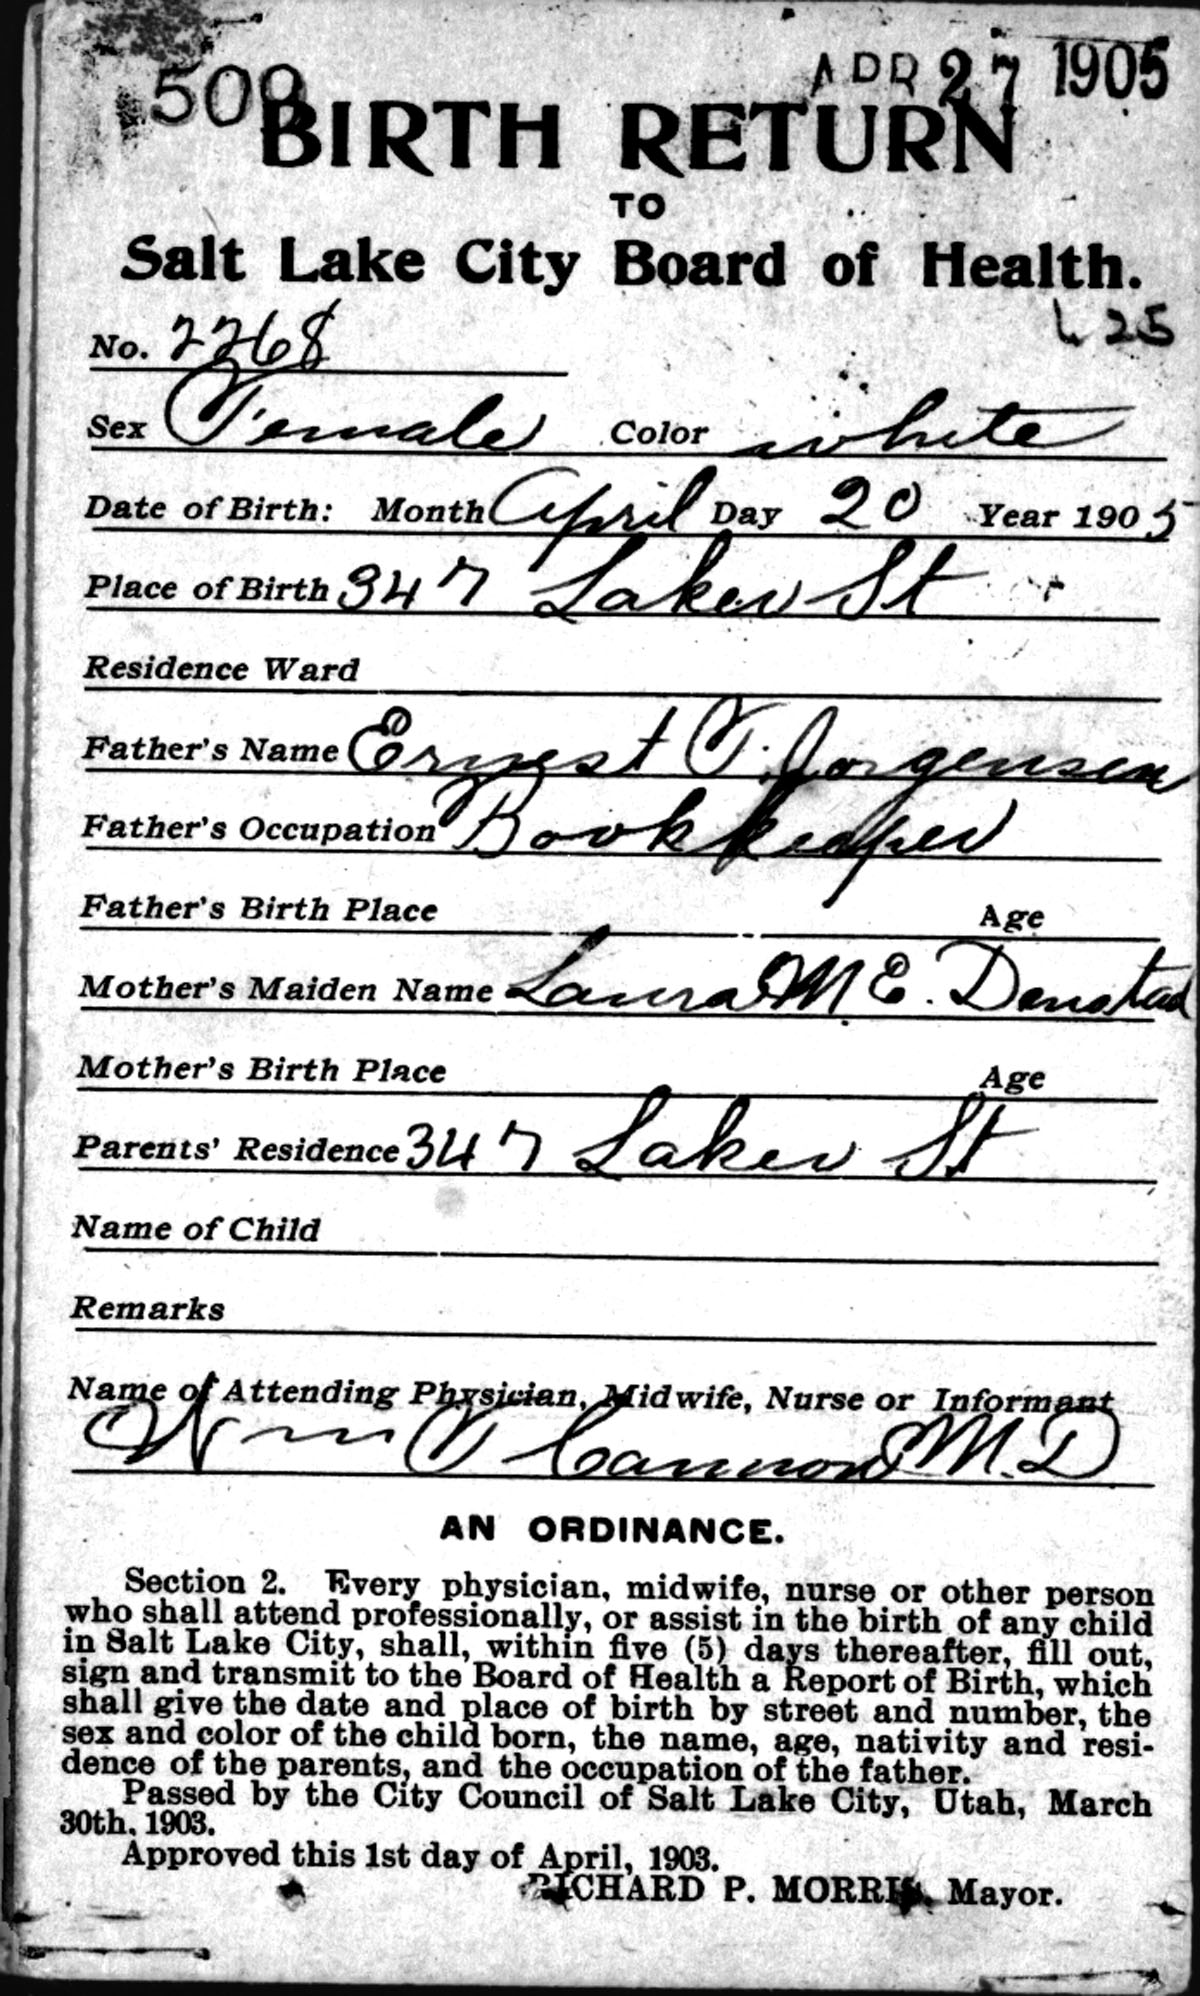 509 APR 27 1905
BIRTH RETURN
TO
Salt Lake City Board of Health.
25
No. 2268
Sex Female Color white
Date of Birth: Month April Day 20 Year 1905
Place of Birth 347 Laker St
Residence Ward
Father's Name Ernest T. Jorgensen
Father's Occupation Bookkeeper
Father's Birth Place Age
Mother's Maiden Name Laura M E. Denstad
Mother's Birth Place Age
Parents' Residence 347 Laker St
Name of Child
Remarks
Name of Attending Physician, Midwife, Nurse or Informant
Wm T Cannon M.D
AN ORDINANCE.
Section 2. Every physician, midwife, nurse or other person
who shall attend professionally, or assist in the birth of any child
in Salt Lake City, shall, within five (5) days thereafter, fill out,
sign and transmit to the Board of Health a Report of Birth, which
shall give the date and place of birth by street and number, the
sex and color of the child born, the name, age, nativity and resi-
dence of the parents, and the occupation of the father.
Passed by the City Council of Salt Lake City, Utah, March
30th, 1903.
Approved this 1st day of April, 1903.
RICHARD P. MORRIS, Mayor.